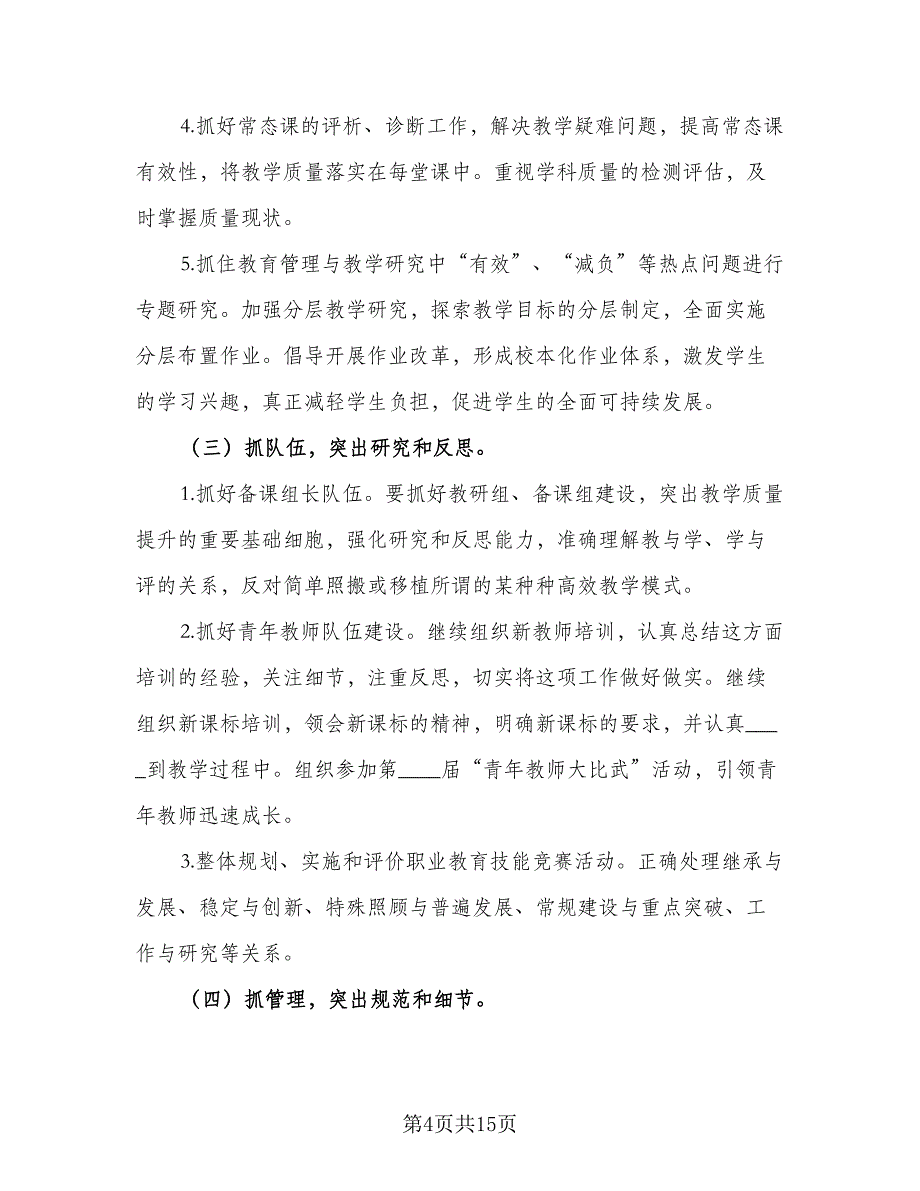 4.抓好常态课的评析、诊断工作，解决教学疑难问题，提高常态课
有效性，将教学质量落实在每堂课中。重视学科质量的检测评估，及
时掌握质量现状。
5.抓住教育管理与教学研究中“有效”、“减负”等热点问题进行
专题研究。加强分层教学研究，探索教学目标的分层制定，全面实施
分层布置作业。倡导开展作业改革，形成校本化作业体系，激发学生
的学习兴趣，真正减轻学生负担，促进学生的全面可持续发展。
（三）抓队伍，突出研究和反思。
1.抓好备课组长队伍。要抓好教研组、备课组建设，突出教学质量
提升的重要基础细胞，强化研究和反思能力，准确理解教与学、学与
评的关系，反对简单照搬或移植所谓的某种种高效教学模式。
2.抓好青年教师队伍建设。继续组织新教师培训，认真总结这方面
培训的经验，关注细节，注重反思，切实将这项工作做好做实。继续
组织新课标培训，领会新课标的精神，明确新课标的要求，并认真___
_到教学过程中。组织参加第____届“青年教师大比武”活动，引领青
年教师迅速成长。
3.整体规划、实施和评价职业教育技能竞赛活动。正确处理继承与
发展、稳定与创新、特殊照顾与普遍发展、常规建设与重点突破、工
作与研究等关系。
（四）抓管理，突出规范和细节。
第4页共15页